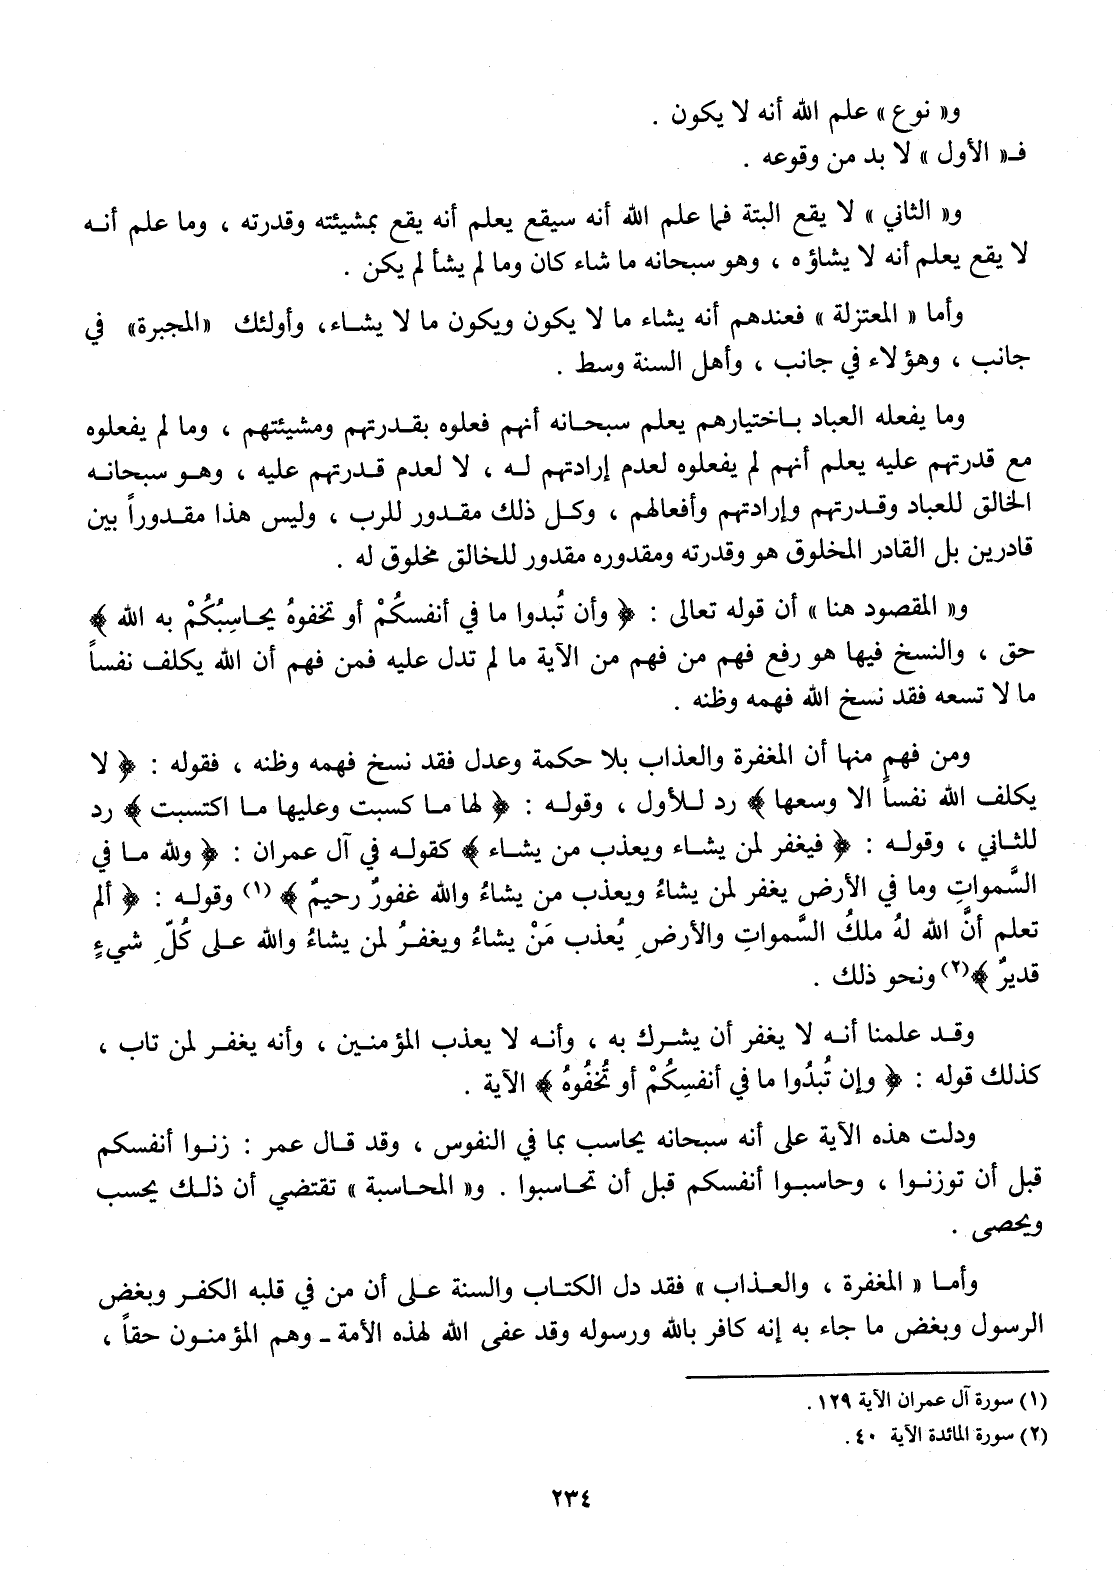 و« نوع » علم الله أنه لا يكون .
فـ« الأول » لا بد من وقوعه .
و« الثاني » لا يقع البتة فما علم الله أنه سيقع يعلم أنه يقع بمشيئته وقدرته ، وما علم أنه
لا يقع يعلم أنه لا يشاؤه ، وهو سبحانه ما شاء كان وما لم يشأ لم يكن .
وأما « المعتزلة » فعندهم أنه يشاء ما لا يكون ويكون ما لا يشاء، وأولئك «المجبرة» في
جانب ، وهؤلاء في جانب ، وأهل السنة وسط .
وما يفعله العباد باختيارهم يعلم سبحانه أنهم فعلوه بقدرتهم ومشيئتهم ، وما لم يفعلوه
مع قدرتهم عليه يعلم أنهم لم يفعلوه لعدم إرادتهم له ، لا لعدم قدرتهم عليه ، وهو سبحانه
الخالق للعباد وقدرتهم وإرادتهم وأفعالهم ، وكل ذلك مقدور للرب ، وليس هذا مقدوراً بين
قادرين بل القادر المخلوق هو وقدرته ومقدوره مقدور للخالق مخلوق له .
و« المقصود هنا » أن قوله تعالى : ﴿ وأن تُبدوا ما في أنفسكُمْ أو تخفوهُ يحاسِبُكُمْ به الله ﴾
حق ، والنسخ فيها هو رفع فهم من فهم من الآية ما لم تدل عليه فمن فهم أن الله يكلف نفساً
ما لا تسعه فقد نسخ الله فهمه وظنه .
ومن فهم منها أن المغفرة والعذاب بلا حكمة وعدل فقد نسخ فهمه وظنه ، فقوله : ﴿ لا
يكلف الله نفساً الا وسعها ﴾ رد للأول ، وقوله : ﴿ لها ما كسبت وعليها ما اكتسبت ﴾ رد
للثاني ، وقوله : ﴿ فيغفر لمن يشاء ويعذب من يشاء ﴾ كقوله في آل عمران : ﴿ ولله ما في
السَّمواتِ وما في الأرض يغفر لمن يشاءُ ويعذب من يشاءُ والله غفورٌ رحيمٌ ﴾ (١) وقوله : ﴿ ألم
تعلم أنَّ الله لهُ ملكُ السَّمواتِ والأرضِ يُعذب مَنْ يشاءُ ويغفرُ لمن يشاءُ والله على كُلِّ شيءٍ
قديرٌ ﴾(٢) ونحو ذلك .
وقد علمنا أنه لا يغفر أن يشرك به ، وأنه لا يعذب المؤمنين ، وأنه يغفر لمن تاب ،
كذلك قوله : ﴿ وإن تُبدُوا ما في أنفسِكُمْ أو تُخفُوهُ ﴾ الآية .
ودلت هذه الآية على أنه سبحانه يحاسب بما في النفوس ، وقد قال عمر : زنوا أنفسكم
قبل أن توزنوا ، وحاسبوا أنفسكم قبل أن تحاسبوا . و« المحاسبة » تقتضي أن ذلك يحسب
ويحصى .
وأما « المغفرة ، والعذاب » فقد دل الكتاب والسنة على أن من في قلبه الكفر وبغض
الرسول وبغض ما جاء به إنه كافر بالله ورسوله وقد عفى الله لهذه الأمة ـ وهم المؤمنون حقاً ،
(١) سورة آل عمران الآية ١٢٩ .
(٢) سورة المائدة الآية ٤٠ .
٢٣٤